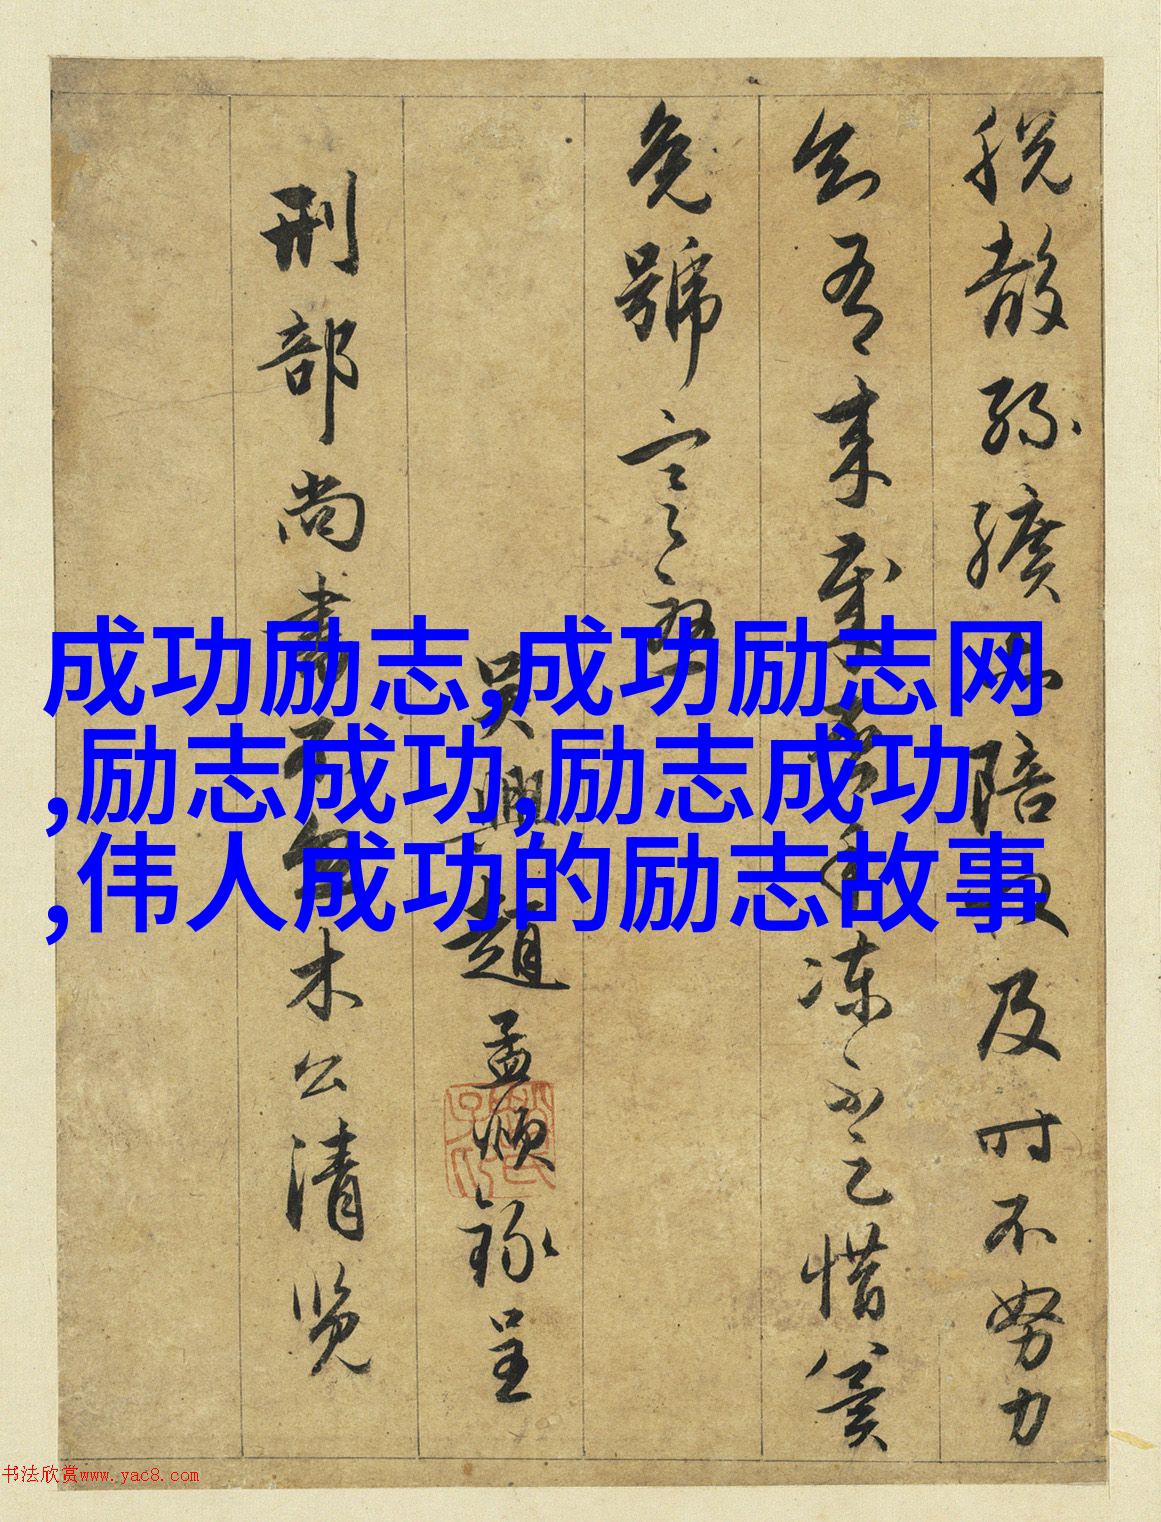 成功励志,成功励志网
,励志成功,励志成功
,伟人成功的励志故事
税散絲纊陪及时不努力
吾来凍惜
免號
吳興趙孟頫錄呈
刑部尚書不忽木公清覽
书法欣赏www.yac8.com